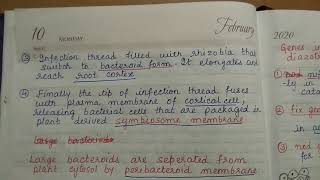 10
MONDAY
February
2020
③ Infection thread filled with rhizobia that
switch to bacteroid form. It elongates and
reach root cortex
④ Finally the tip of infection thread fuses
with plasma membrane of cortical cell,
releasing bacterial cells that are packaged in
plant derived symbiosome membrane
Large
Large bacteroids are seperated from
plant cytosol by peribacteroid membrane
Genes in
diazot
① nod
nutri
② fix gen
in a
③ nod g
for n